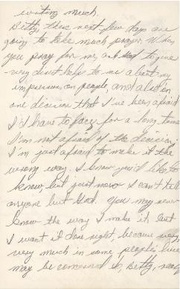 writing much.
Betty, these next few days are
going to take much prayer. When
you pray for me ask God to give
very
impression on people, and also on
one decision that I've been afraid
I'd have to face for a long time.
I'm not afraid of the decision,
I'm just afraid to make it the
wrong way. I know you'd like to
know, but just now I can't tell
anyone but God.
know the way I make it but
I want it done right because
very much in some people's lives
may be concerned in Betty,